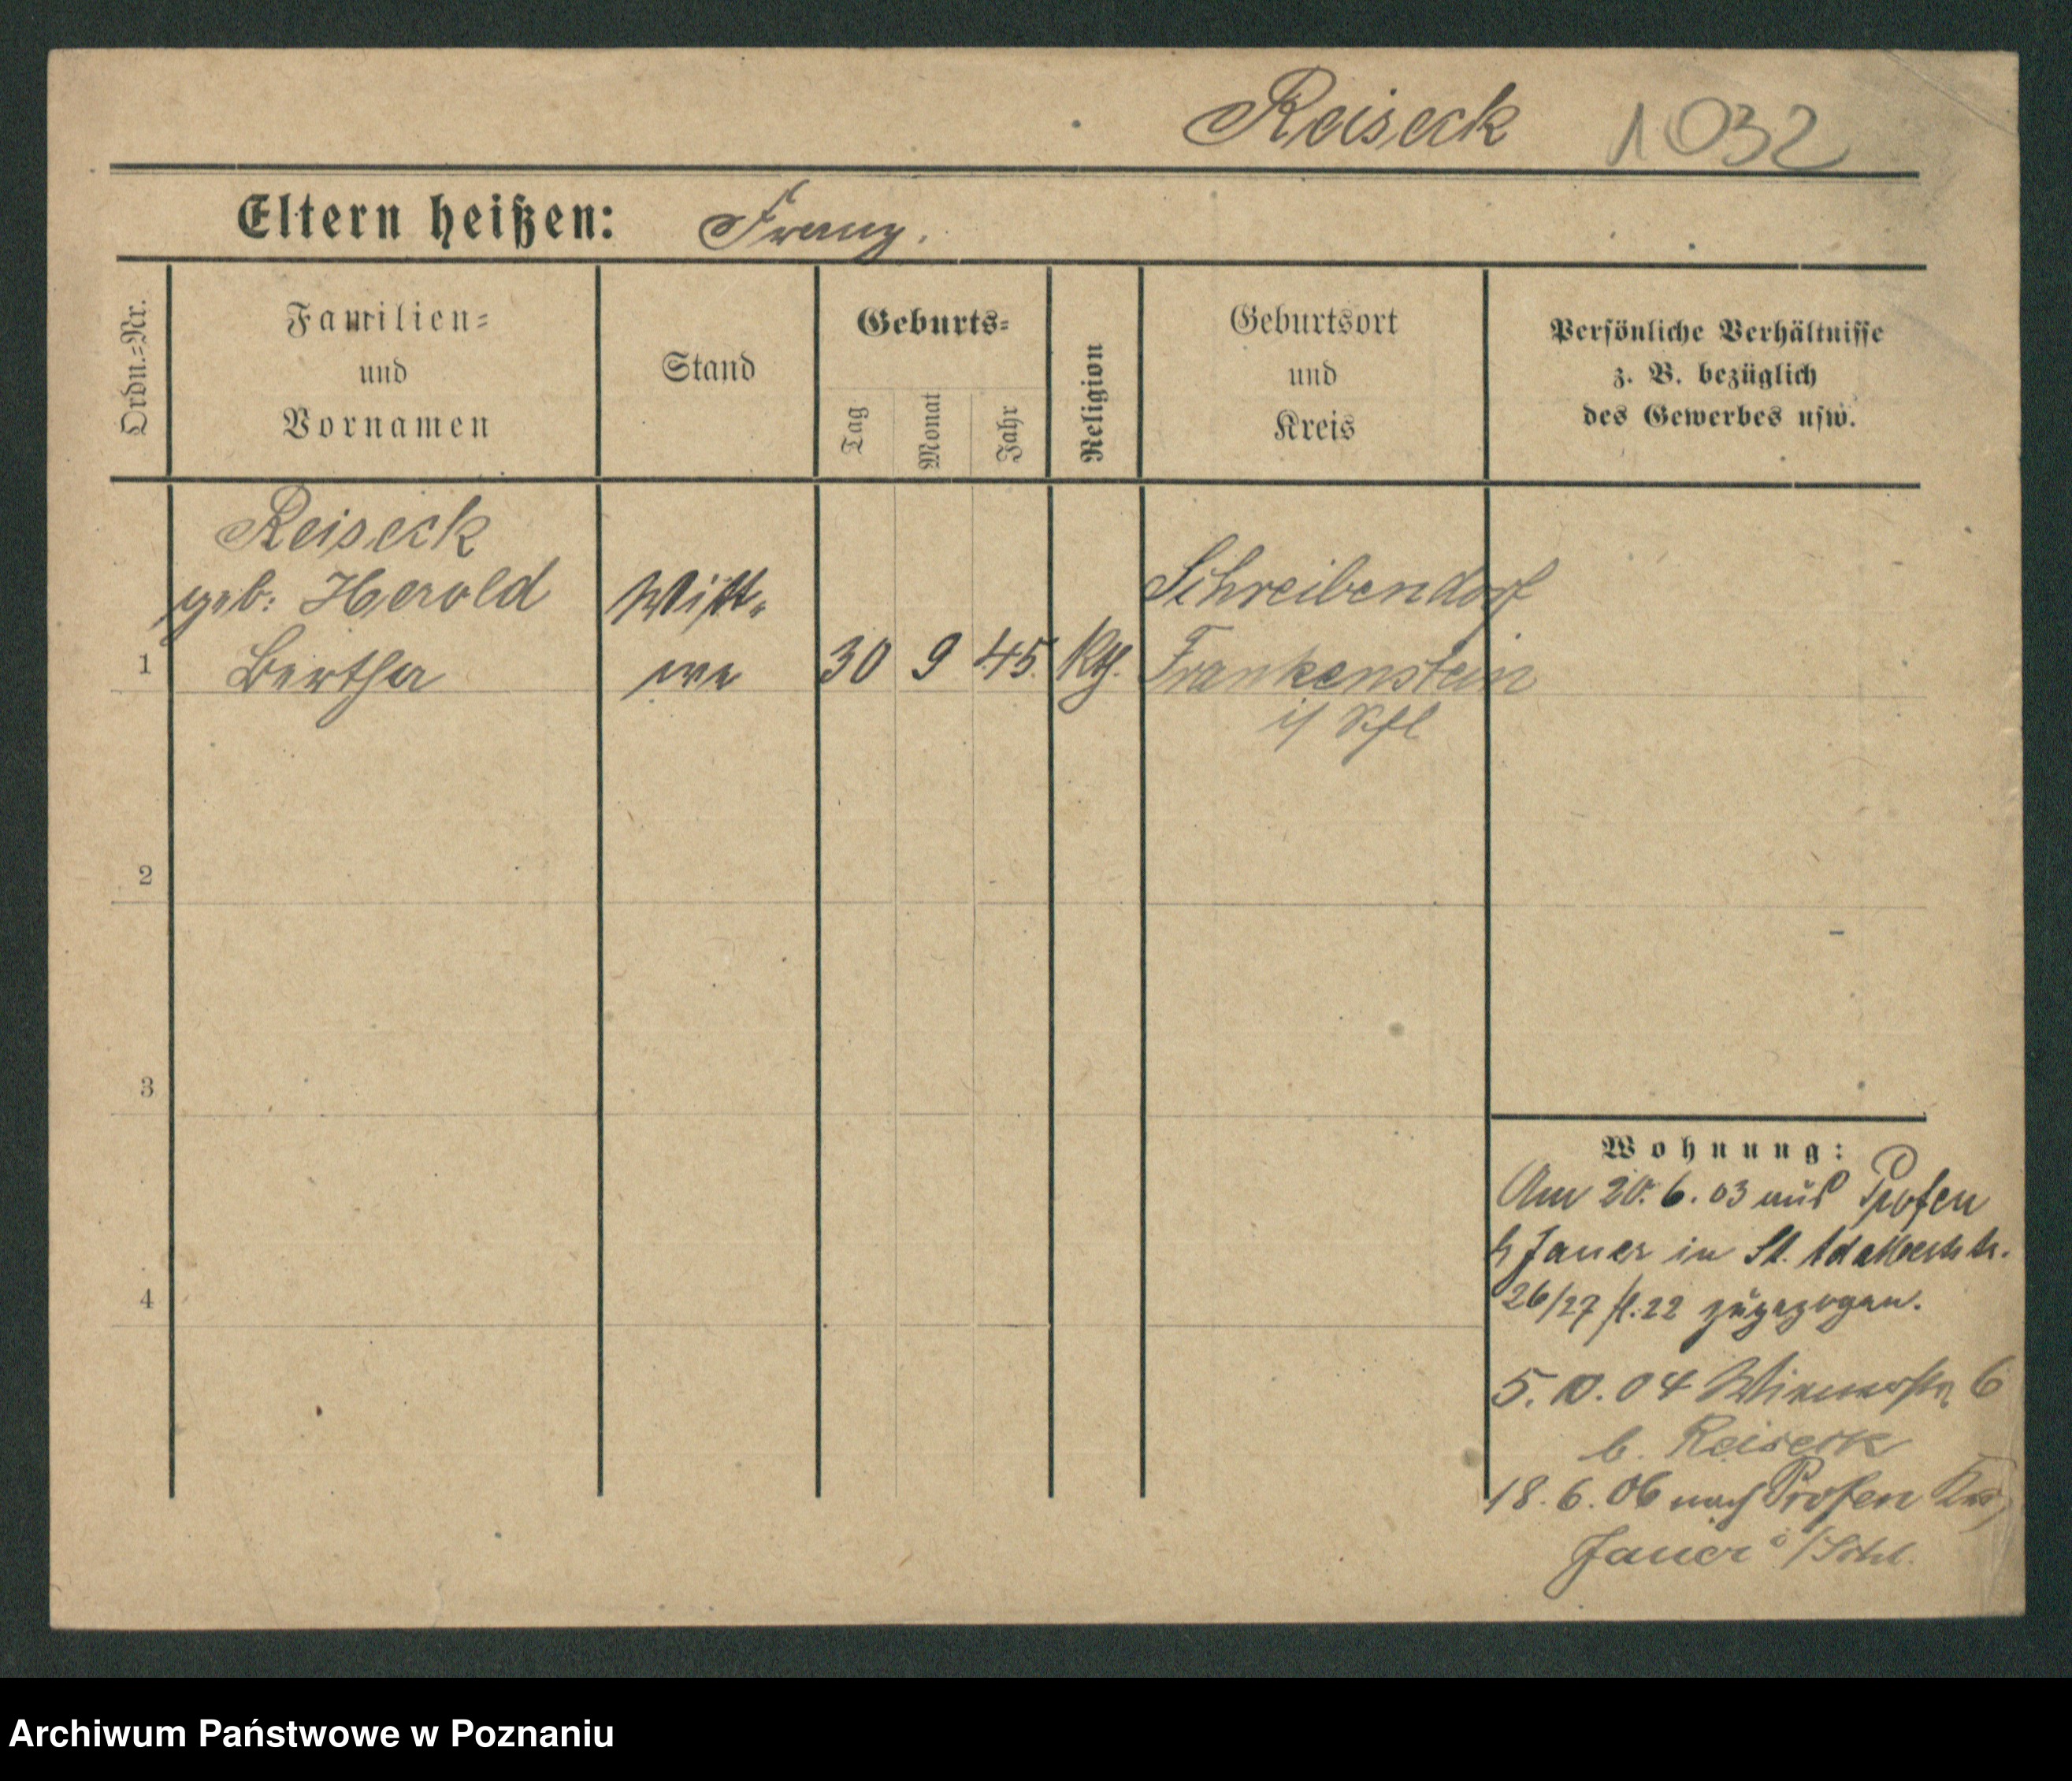 Reiseck 1032
Eltern heißen: Franz.
Ordn.=Nr.
Familien=
und
Vornamen
Stand
Geburts=
Tag
Monat
Jahr
Religion
Geburtsort
und
Kreis
Persönliche Verhältnisse
z. B. bezüglich
des Gewerbes usw.
Reiseck
geb: Herold
Bertha
Witt-
we
1
30 9 45. Kth.
Schreibendorf
Frankenstein
i/ Schl
2
3
4
Wohnung:
Am 20.6.03 aus Profen
Jauer in St. Adalbertstr.
26/27 zugezogen.
5.10.04 Wienerstr. 6
b. Reiseck
18.6.06 nach Profen Krs
Jauer i/Schl.
Archiwum Państwowe w Poznaniu